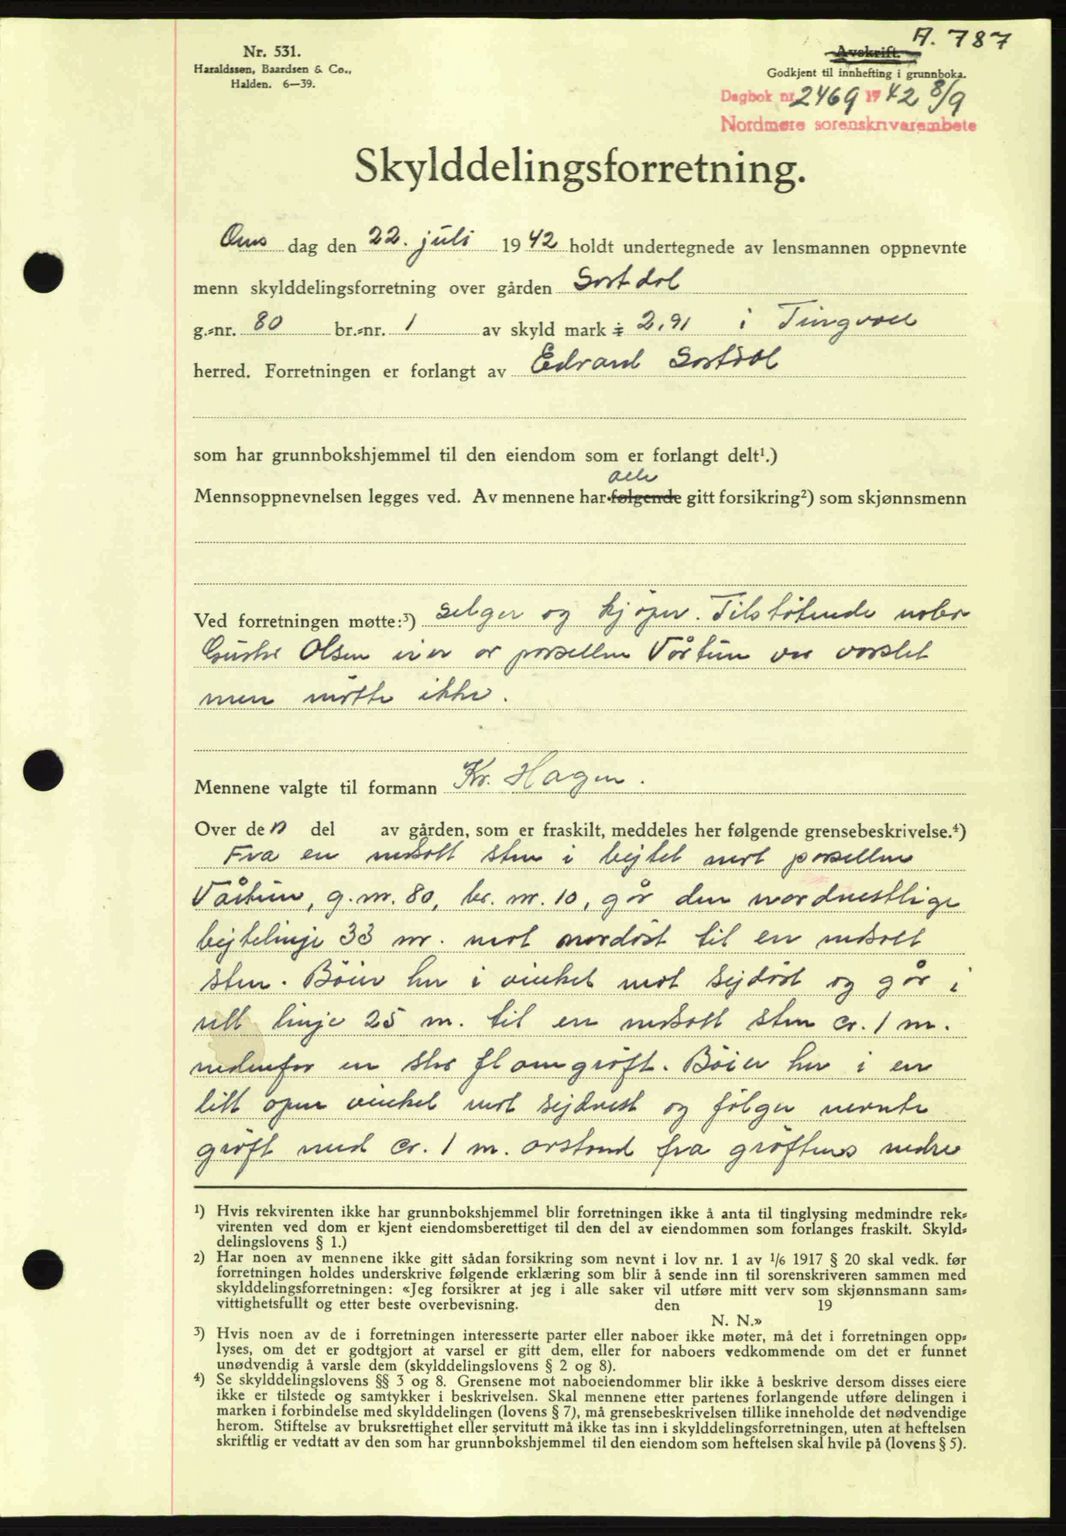 A. 787
Nr. 531.
Haraldssen, Baardsen & Co.,
Halden. 6—39.
Avskrift.
Godkjent til innhefting i grunnboka.
Dagbok nr. 2469 1942 8/9
Nordmøre sorenskrivarembete
Skylddelingsforretning.
Ons dag den 22. juli 1942 holdt undertegnede av lensmannen oppnevnte
menn skylddelingsforretning over gården Sortdal
g.-nr. 80 br.-nr. 1 av skyld mark 2,91 i Tingvoll
herred. Forretningen er forlangt av Edvard Sortdal
som har grunnbokshjemmel til den eiendom som er forlangt delt¹.)
alle
Mennsoppnevnelsen legges ved. Av mennene har følgende gitt forsikring²) som skjønnsmenn
Ved forretningen møtte:³) selger og kjøper. Tilstøtende nabo
Olsen eier av parsellen Våtun var varslet
men møtte ikke.
Mennene valgte til formann Kr. Hagen.
Over den del av gården, som er fraskilt, meddeles her følgende grensebeskrivelse.⁴)
Fra en nedsatt sten i bejtet mot parsellen
Våtun, g. nr. 80, br. nr. 10, går den nordvestlige
bejtelinje 33 m. mot nordøst til en nedsatt
sten. Bøier her i vinkel mot sejdøst og går i
rett linje 25 m. til en nedsatt sten ca. 1 m.
nedenfor en stor flomgrøft. Bøier her i en
litt open vinkel mot sejdvest og følger nevnte
grøft med ca. 1 m. avstand fra grøftens nedre
¹) Hvis rekvirenten ikke har grunnbokshjemmel blir forretningen ikke å anta til tinglysing medmindre rek-
virenten ved dom er kjent eiendomsberettiget til den del av eiendommen som forlanges fraskilt. Skyld-
delingslovens § 1.)
²) Har noen av mennene ikke gitt sådan forsikring som nevnt i lov nr. 1 av 1/6 1917 § 20 skal vedk. før
forretningen holdes underskrive følgende erklæring som blir å sende inn til sorenskriveren sammen med
skylddelingsforretningen: «Jeg forsikrer at jeg i alle saker vil utføre mitt verv som skjønnsmann sam-
vittighetsfullt og etter beste overbevisning. den 19
N. N.»
³) Hvis noen av de i forretningen interesserte parter eller naboer ikke møter, må det i forretningen opp-
lyses, om det er godtgjort at varsel er gitt dem, eller for naboers vedkommende om det er funnet
unødvendig å varsle dem (skylddelingslovens § 2 og 8).
⁴) Se skylddelingslovens §§ 3 og 8. Grensene mot naboeiendommer blir ikke å beskrive dersom disses eiere
ikke er tilstede og samtykker i beskrivelsen. Skal mennene etter partenes forlangende utføre delingen i
marken i forbindelse med skylddelingen (lovens § 7), må grensebeskrivelsen tillike inneholde det nødvendige
herom. Stiftelse av bruksrettighet eller servitutt må ikke tas inn i skylddelingsforretningen, uten at heftelsen
skriftlig er vedtatt av den som har grunnbokshjemmel til den eiendom som heftelsen skal hvile på (lovens § 5).